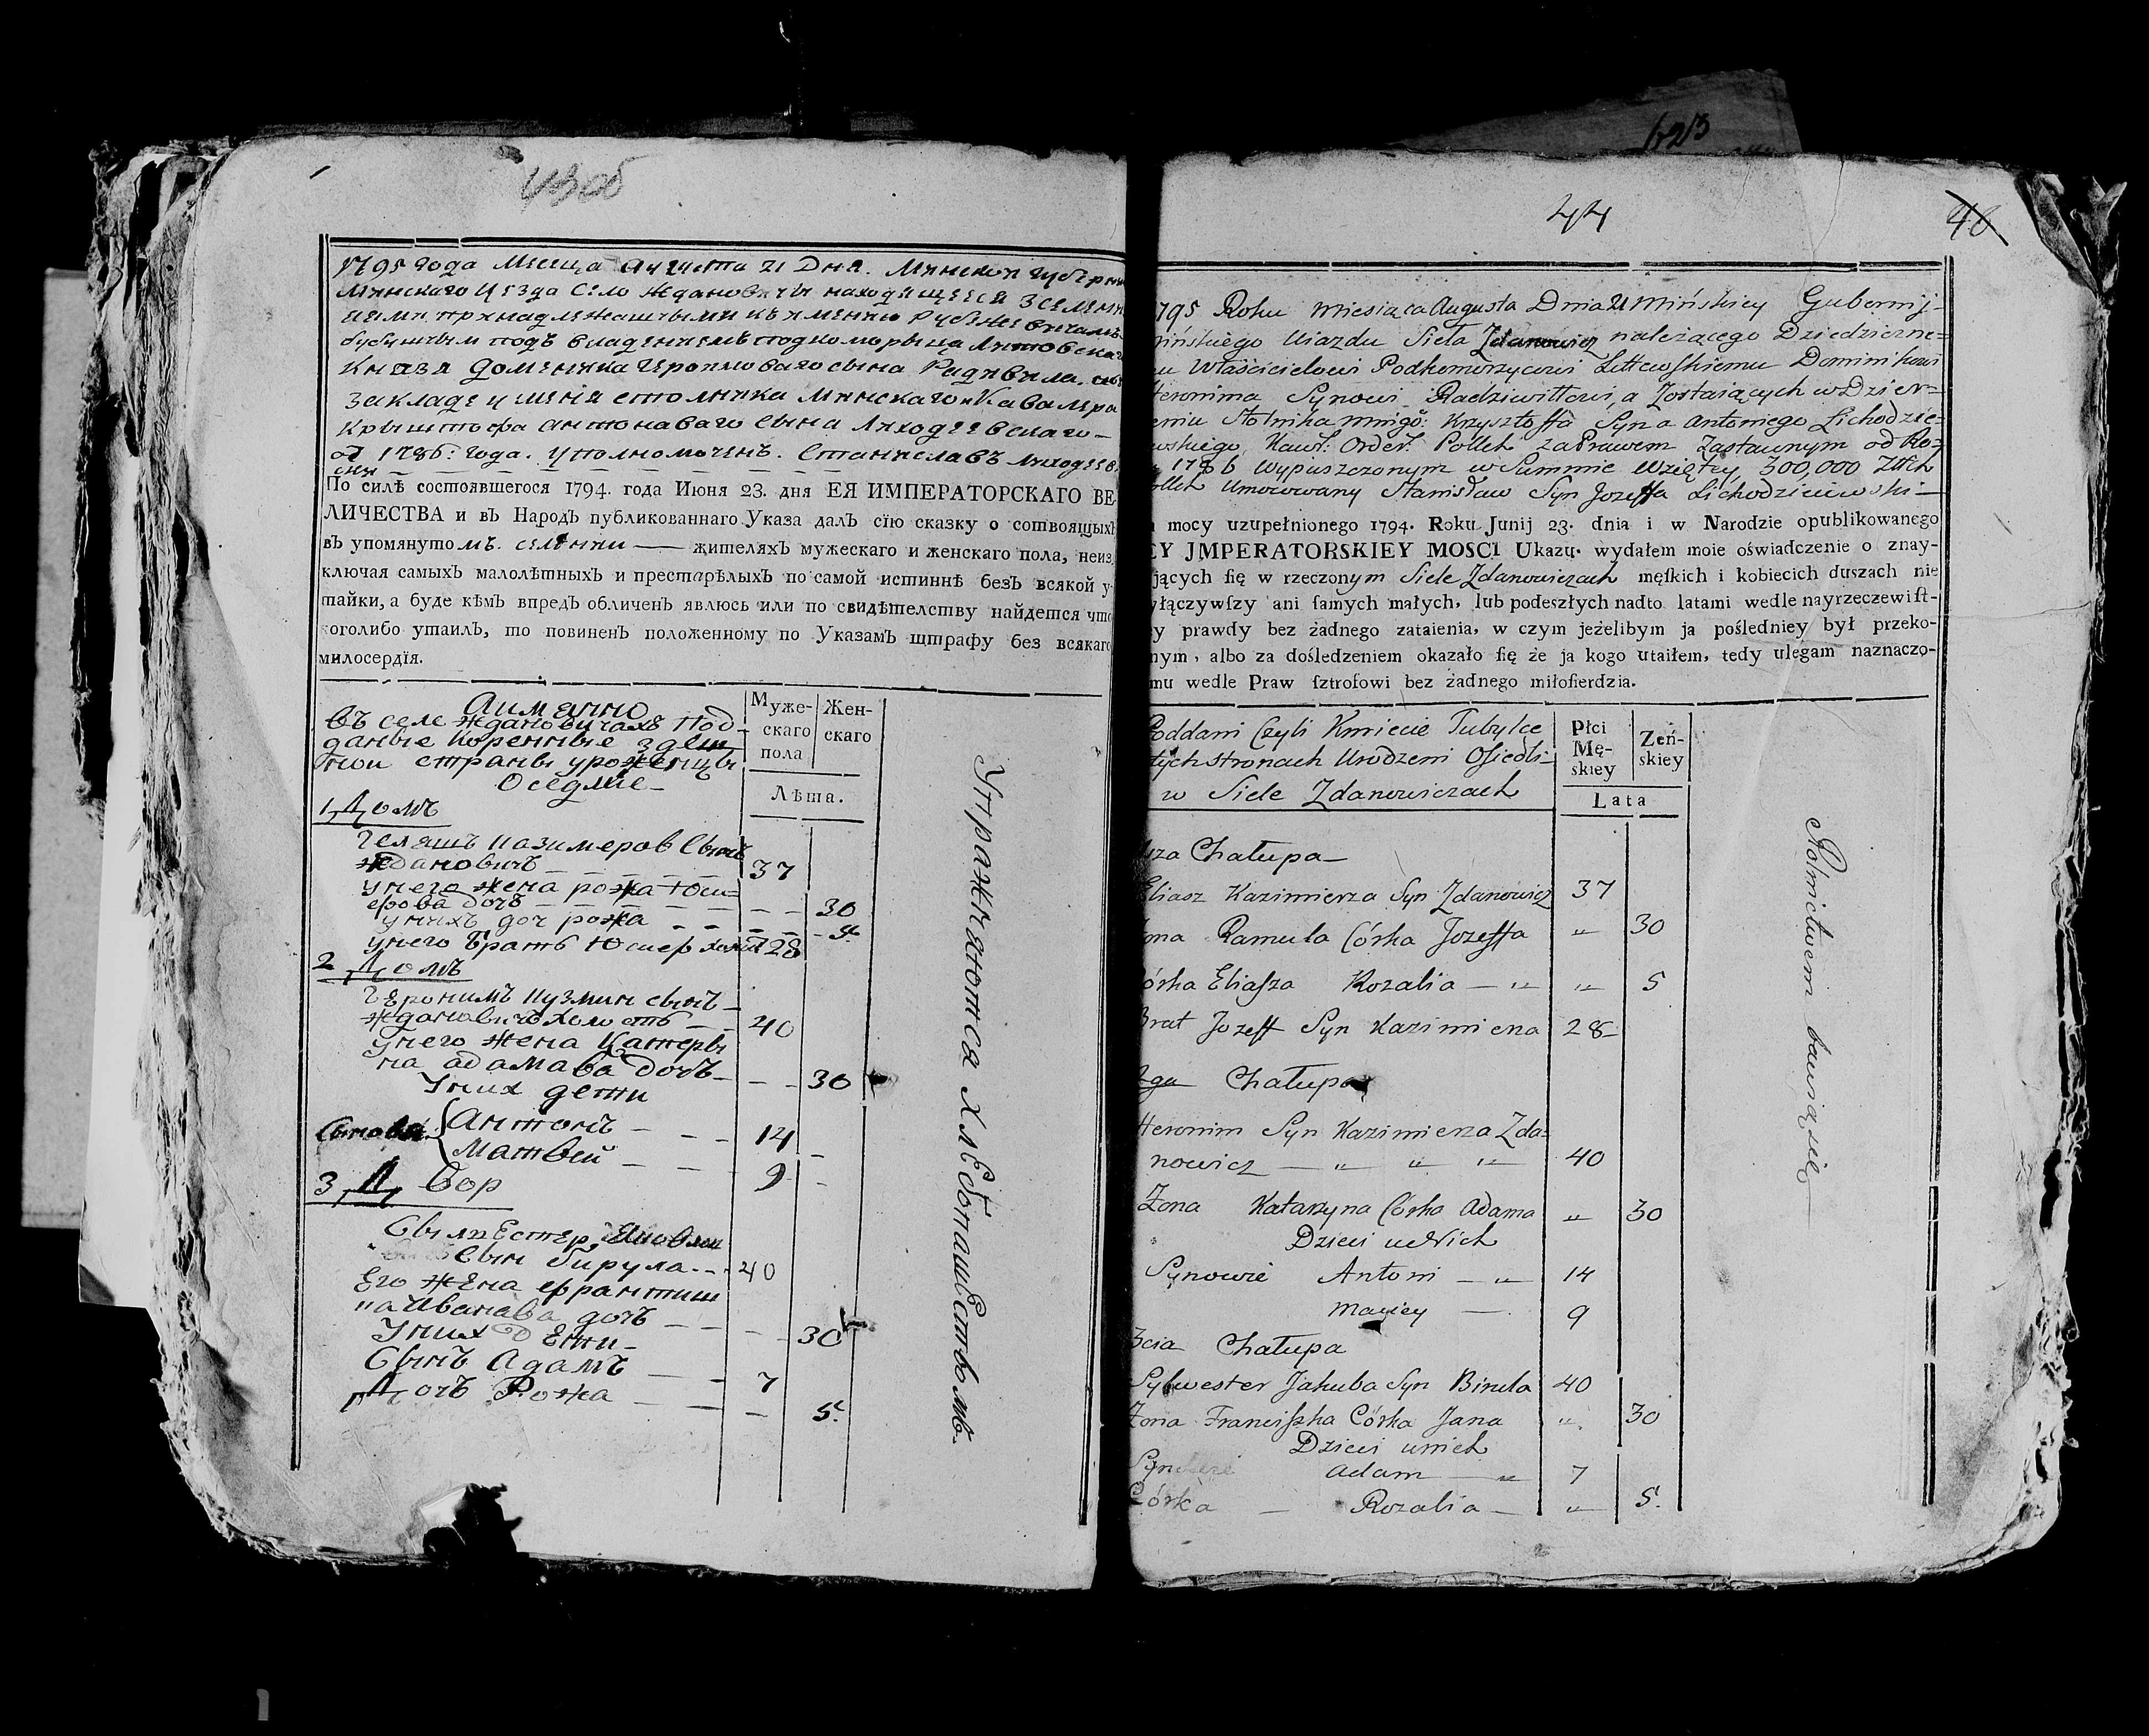 43об
1795 года Месеца Августа 21 Дня. Минской губерни
Минскаго уезда село Ждановичи находящееся
принадлежащыми къ имению
подъ владениемъ подкоморыца Литовскаго
Князя Доминика Иеронимоваго сына Радивила.
закладе у мения столника Минскаго и Кавалера
Крыштофа Антонаваго сына Лиходиевскаго
од 1786: года. уполномоченъ. Станиславъ Лиходиев
ски
По силѣ состоявшегося 1794. года Июня 23. дня ЕЯ ИМПЕРАТОРСКАГО ВЕ-
ЛИЧЕСТВА и въ Народъ публикованнаго Указа далъ сїю сказку о состоящыхъ
въ упомянутомъ. селении — жителяхъ мужескаго и женскаго пола, неиз
ключая самыхъ малолѣтныхъ и престарѣлыхъ по самой истиннѣ безъ всякой у-
тайки, а буде кѣмъ впредъ обличенъ явлюсь или по свидѣтелству найдется что
коголибо утаилъ, то повиненъ положенному по Указамъ щтрафу без всякаго
милосердїя.
Аименно
въ селе Ждановичахъ под-
даные коренные здеш
ной страны уроженцы
Оседлые
Муже-
скаго
пола
Жен-
скаго
Лѣта.
1, Домъ
Геляшъ Казимеров Сынъ
Ждановичъ 37
у него жена рожа Юзи-
ерова дочъ 30
у нихъ доч рожа 5.
у него братъ Юзиер холост 28
2, Домъ
Геронимъ Кузмин сынъ
Ждановичъ 40
у него жена Катеры
на адамава дочъ 30
У них дети
Сыновя { Антонъ 14
Матвей 9
3, Двор
Сылвестер,
Сын бирула 40
Его жена франтиш
ка Иванава дочъ 30
У них дети
Сынъ Адамъ 7
Дочъ Рожа 5.
Упражняются хлебопашествомъ.
44
40
1795 Roku Miesiąca Augusta Dnia 21 Mińskiey Gubernij-
mińskiego Uiazdu Sieła Zdanowicz należącego Dziedziczne-
mu Właścicielowi Podkomorzycowi Littewskiemu Dominikowi
Heronima Synowi Radziwiłłowi, a Zostaiących w Dzier-
żeniu Stolnika Mingo: Krzysztoffa Syna Antoniego Lichodzie-
iewskiego, Kawl: Order: Pollch za Prawem Zastawnym od Ro-
1786 Wypuszczonym w Summie Wziętey 300,000 Złłch
ollch Umocowany Stanisław Syn Jozeffa Lichodziiewski—
mocy uzupełnionego 1794. Roku Junij 23. dnia i w Narodzie opublikowanego
EY JMPERATORSKIEY MOSCI Ukazu. wydałem moie oświadczenie o znay-
jących ſię w rzeczonym Siele Zdanowiczach męſkich i kobiecich duszach nie
yłączywſzy ani ſamych małych, lub podeszłych nadto latami wedle nayrzeczewiſt-
ey prawdy bez żadnego zataienia, w czym jeżelibym ja poſledniey był przeko-
nym, albo za doſledzeniem okazało ſię że ja kogo utaiłem, tedy ulegam naznaczo-
mu wedle Praw ſztrofowi bez żadnego miłoſierdzia.
Poddani Czyli Kmiecie Tubylce
tych stronach Urodzeni Osiedli-
w Siele Zdanowiczach
Płci
Mę-
skiey
Zeń-
skiey
Lata
wsza Chałupa—
Eliasz Kazimierza Syn Zdanowicz 37
Zona Ramula Córka Jozeffa „ 30
Córka Eliaſza Rozalia — „ „ 5
Brat Jozeff Syn Kazimierza 28
2ga Chałupa
Heronim Syn Kazimierza Zda-
nowicz — „ „ „ 40
Zona Katarzyna Córka Adama „ 30
Dzieci u Nich
Synowie Antoni — „ 14
Maciey — 9
3cia Chałupa
Sylwester Jakuba Syn Birula 40
Zona Franciſzka Córka Jana „ 30
Dzieci u nich
Adam — „ 7
Córka — Rozalia — „ 5.
Rolnictwem bawią się